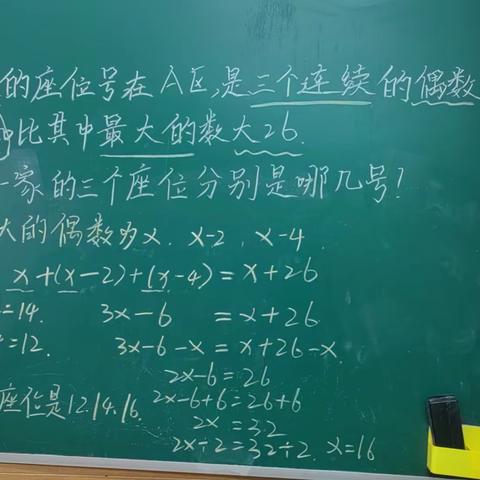 的座位号在A区,是三个连续的偶数
比其中最大的数大26.
家的三个座位分别是哪几号?
大的偶数为x. x-2, x-4.
x+(x-2)+(x-4)=x+26
=14. 3x-6 =x+26
=12. 3x-6-x=x+26-x.
2x-6=26
座位是12.14.16. 2x-6+6=26+6
2x=32
2x÷2=32÷2. x=16